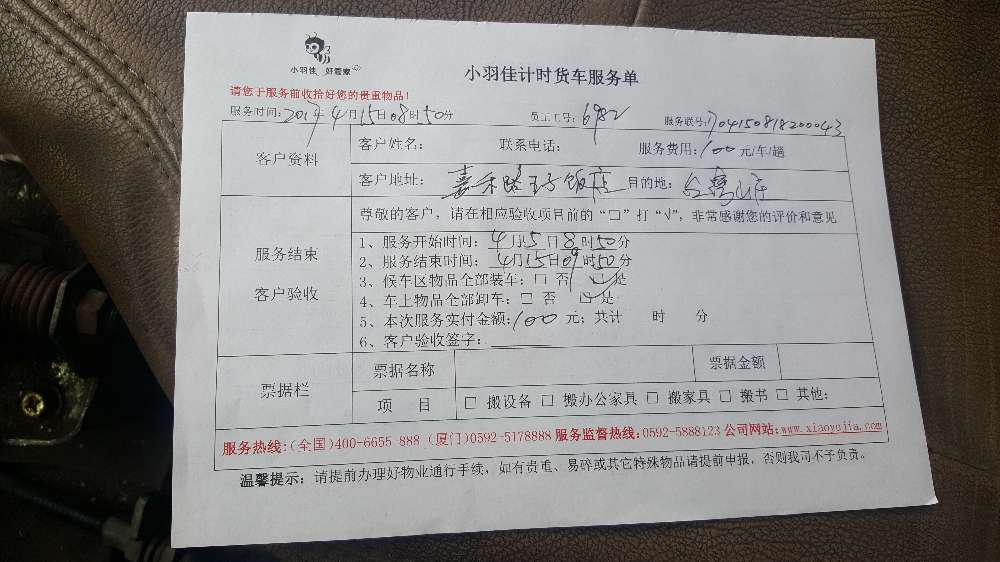 小羽佳 好管家
小羽佳计时货车服务单
请您于服务前收拾好您的贵重物品!
服务时间:2017年4月15日08时50分 员工工号:6982 服务联号:1704150818200043
客户资料 客户姓名: 联系电话: 服务费用:100元/车/趟
客户地址:嘉禾路 饭店 目的地:
尊敬的客户,请在相应验收项目前的“□”打“√”,非常感谢您的评价和意见
服务结束
客户验收
1、服务开始时间:4月15日8时50分
2、服务结束时间:4月15日09时50分
3、候车区物品全部装车:□ 否 ☑ 是
4、车上物品全部卸车:□ 否 ☑ 是
5、本次服务实付金额:100元;共计 时 分
6、客户验收签字:
票据栏 票据名称 票据金额
项 目 □ 搬设备 □ 搬办公家具 □ 搬家具 □ 搬书 □ 其他:
服务热线:(全国)400-6655 888 (厦门)0592-5178888 服务监督热线:0592-5888123 公司网站:www.xiaoyujia.com
温馨提示:请提前办理好物业通行手续,如有贵重、易碎或其它特殊物品请提前申报,否则我司不予负责。